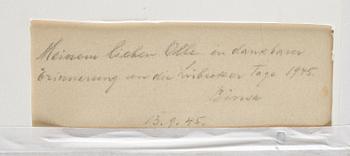 Meinem lieben Olle in dankbarer
Erinnerung an die Tage 1945.
13.9.45.